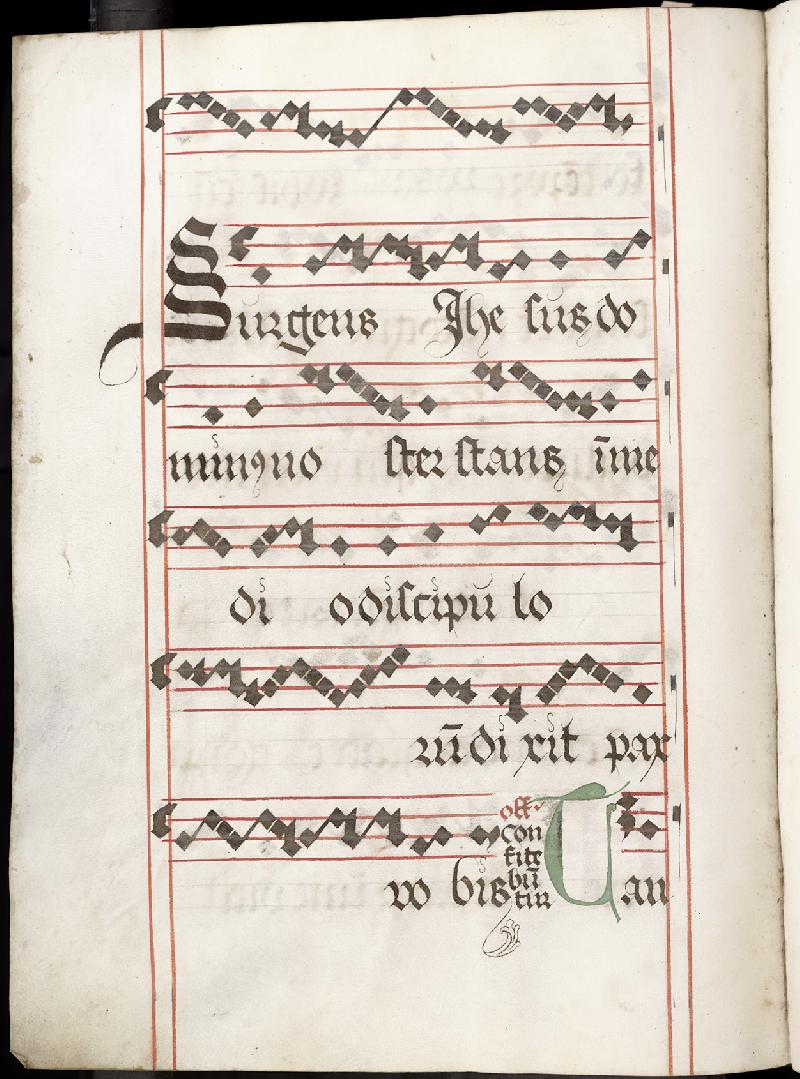 Surgens Jhe sus do
minꝰ no ster stans ī me
di o discipu lo
rū di xit pax
vo bis off. con fite bū tur Can